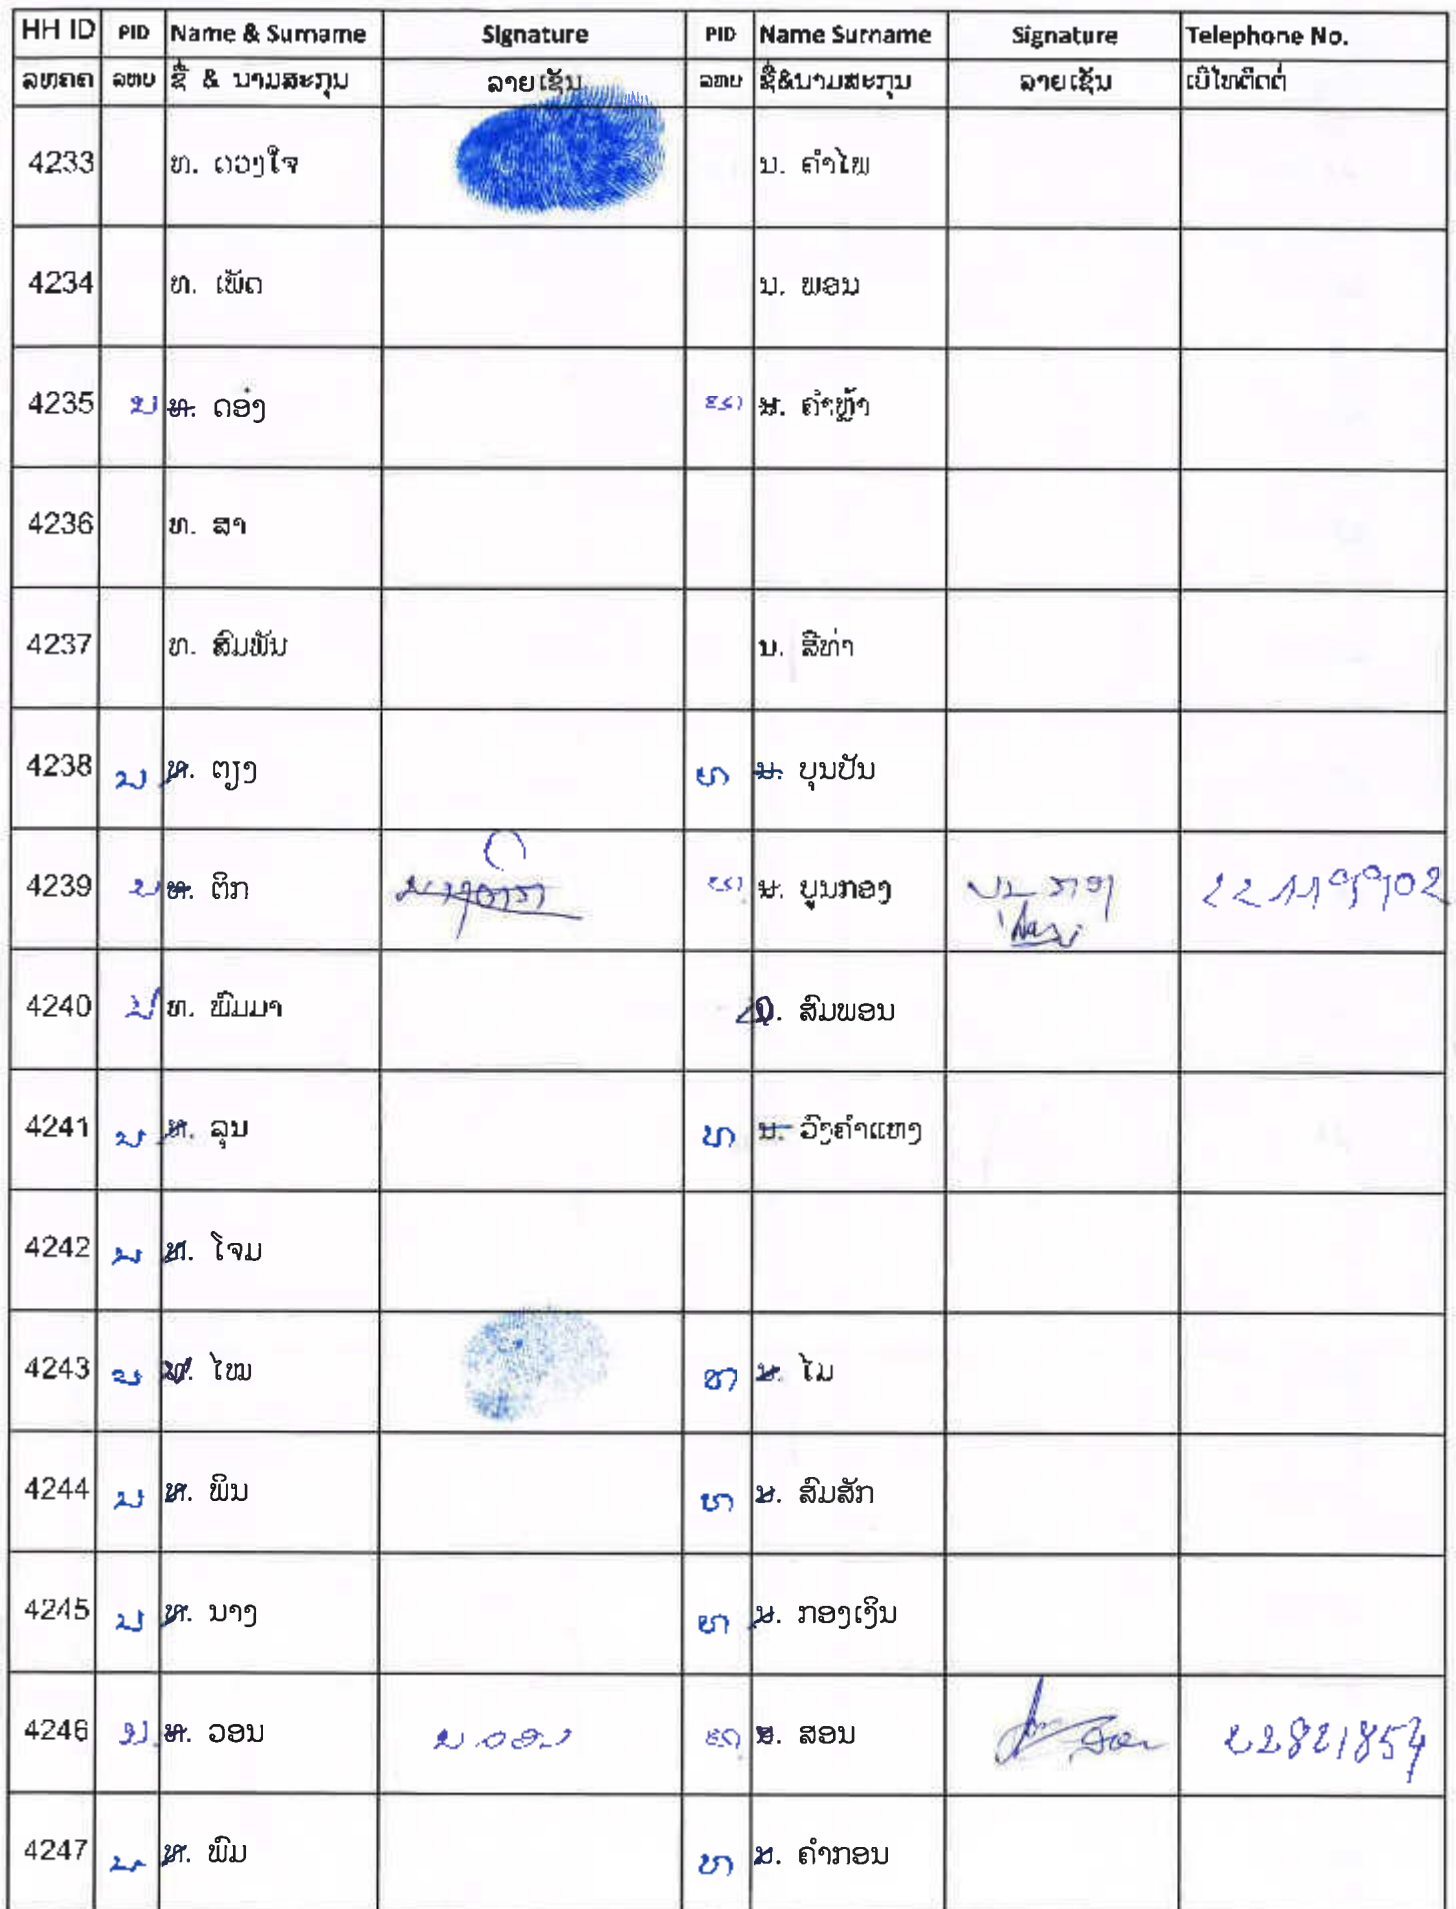 HH ID PID Name & Surname Signature PID Name Surname Signature Telephone No.
ລຫຄຄ ລຫບ ຊື່ & ນາມສະກຸນ ລາຍເຊັນ ລຫບ ຊື່&ນາມສະກຸນ ລາຍເຊັນ ເບີໂທຕິດຕໍ່
4233 ທ. ດວງໃຈ ນ. ຄຳໄພ
4234 ທ. ເພັດ ນ. ພອນ
4235 ນ ທ. ດອ່ງ ທ ນ. ຄຳຫຼ້າ
4236 ທ. ສາ
4237 ທ. ສົມພັນ ນ. ສີທ່າ
4238 ນ ທ. ຕຽງ ທ ນ. ບຸນປັນ
4239 ນ ທ. ຕິກ ທ ນ. ບູນກອງ
4240 ນ ທ. ພິມມາ ນ. ສົມພອນ
4241 ນ ທ. ລຸນ ທ ນ. ວົງຄຳແຫງ
4242 ນ ທ. ໂຈມ
4243 ນ ທ. ໄໝ ທ ນ. ໄມ
4244 ນ ທ. ພິນ ທ ນ. ສົມສັກ
4245 ນ ທ. ນາງ ທ ນ. ກອງເງິນ
4246 ນ. ທ. ວອນ ນ ວອນ ທ ນ. ສອນ 22821854
4247 ນ ທ. ພິມ ທ ນ. ຄຳກອນ